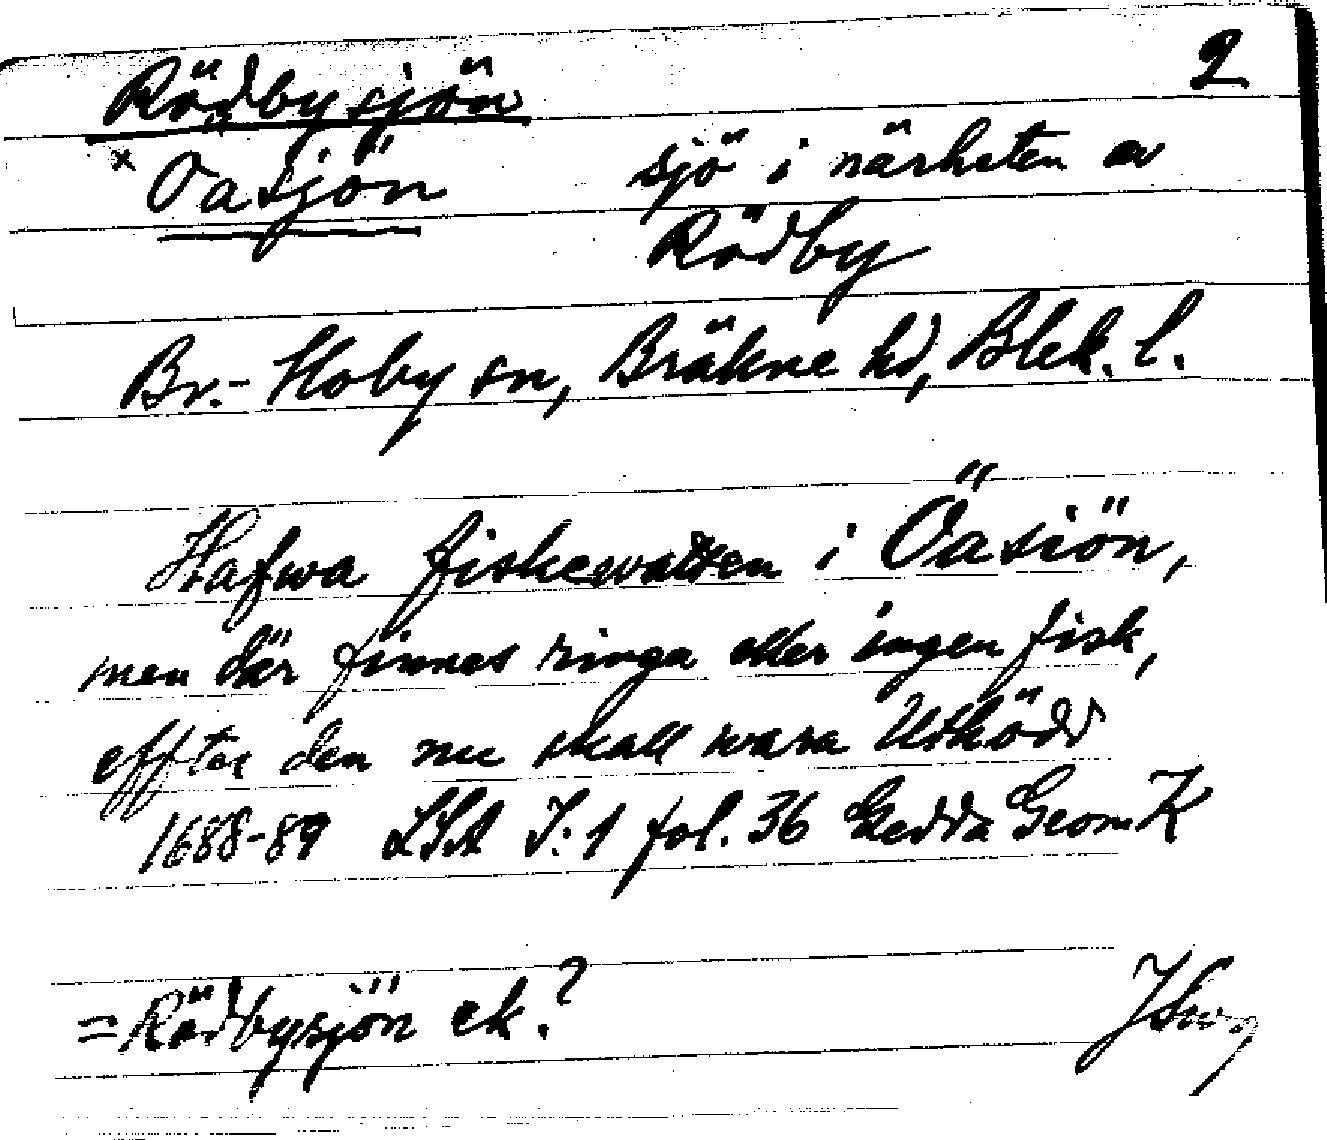 Rödbysjön 2
x Öasjön sjö i närheten av
Rödby
Br.- Hoby sn, Bräkne hd, Blek. l.
Hafwa fiskewatten i Öäsiön,
men där finnes ringa eller ingen fisk,
effter den nu skall wara Utködd
1688-89 LSA I:1 fol. 36 Gedda Geom K
=Rödbysjön ek.?